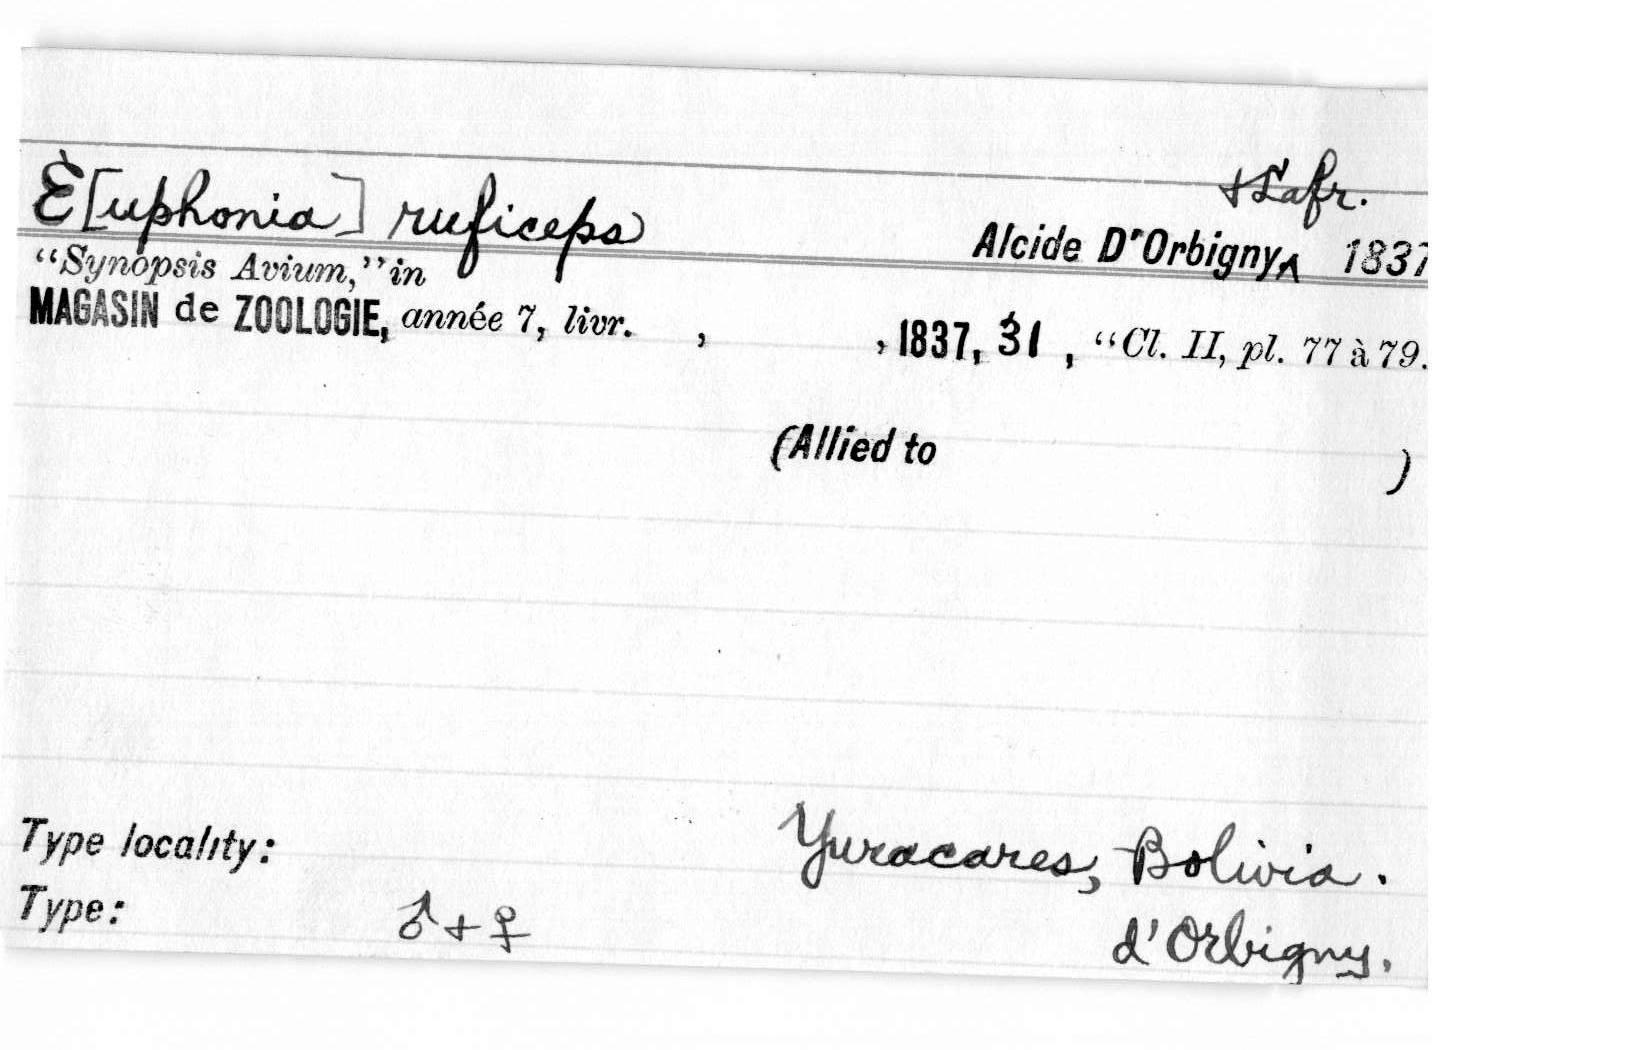 E[uphonia] ruficeps
+ Lafr.
Alcide D'Orbigny ʌ 1837
“Synopsis Avium,” in
MAGASIN de ZOOLOGIE, année 7, livr. , , 1837, 31 , “Cl. II, pl. 77 à 79.
(Allied to )
Type locality: Yuracares, Bolivia.
Type: ♂ + ♀ d'Orbigny.